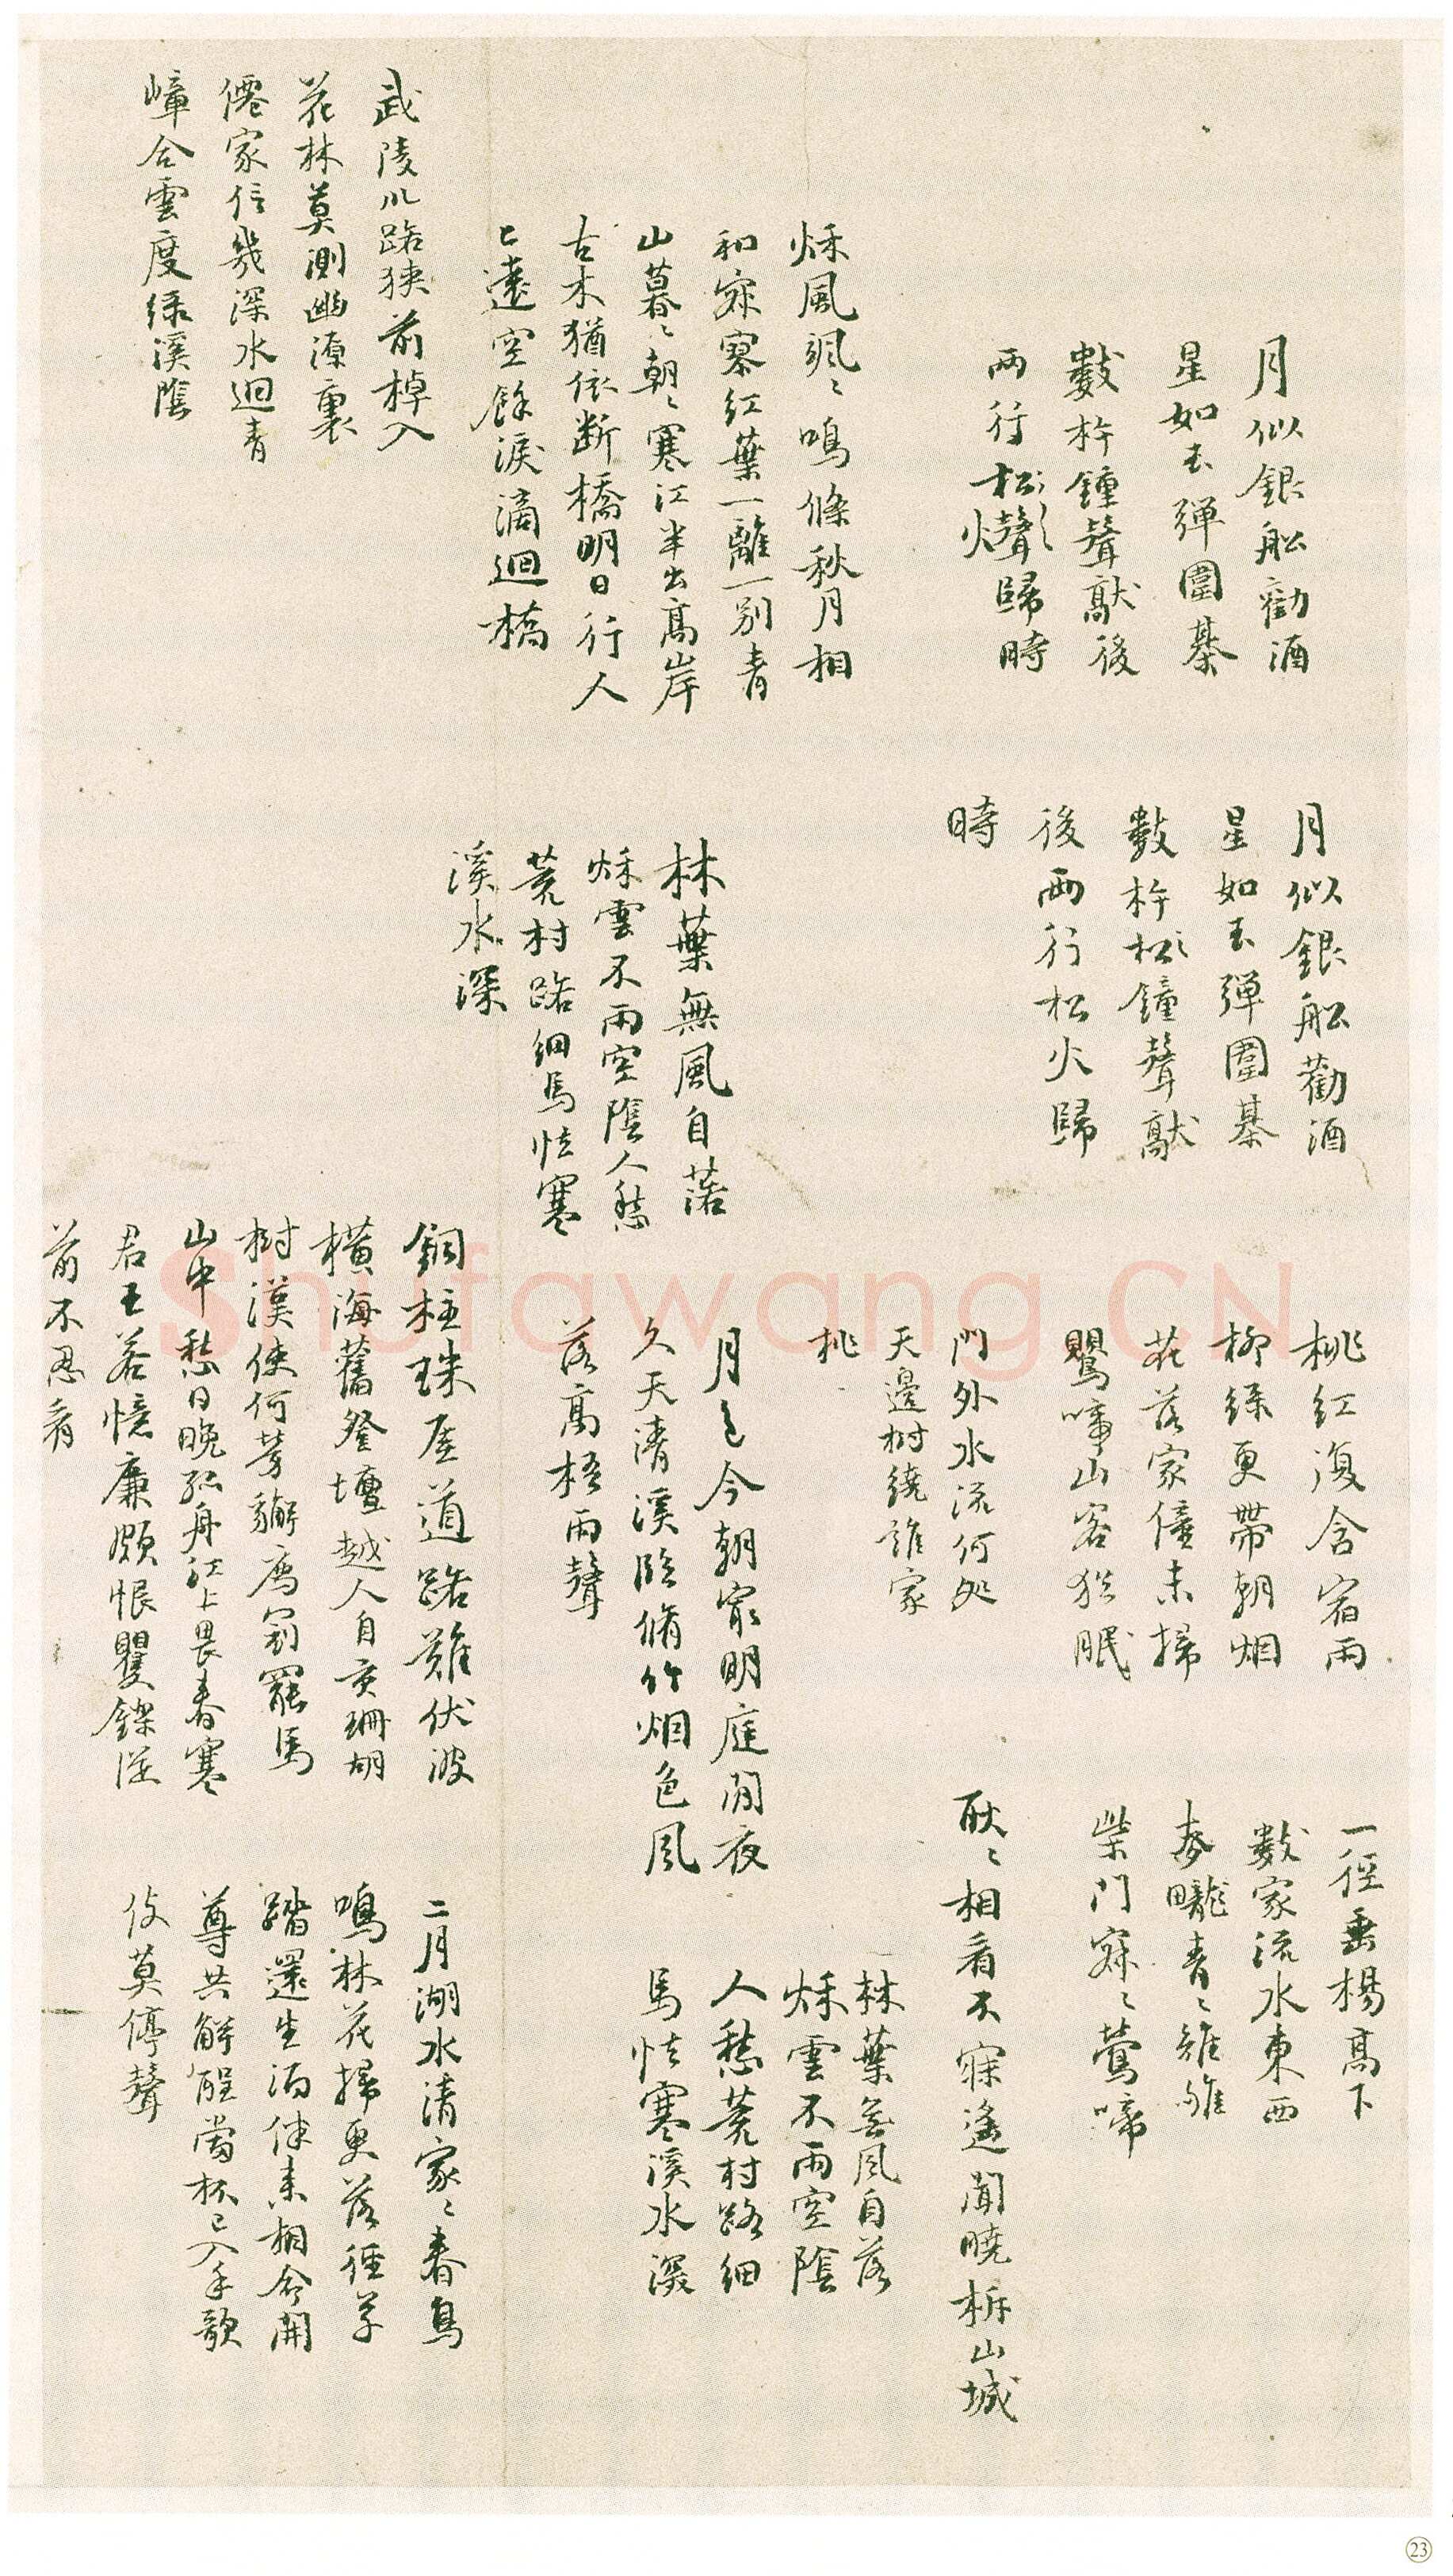 月似銀船勸酒
星如玉彈圍棊
數杵鍾聲獻後
兩行松火聲歸時
秌風颯〻鳴條秋月相
和寂寥紅葉一離一別青
山暮〻朝〻寒江半出高岸
古木猶依断橋明日行人
已遠空餘淚滴迴橋
武陵川路狹前棹入
花林莫測幽源裏
僊家信幾深水迴青
嶂合雲度綠溪陰
月似銀船勸酒
星如玉彈圍棊
數杵松鐘聲獻
後兩行松火歸
時
林葉無風自落
秌雲不雨空陰人愁
荒村路細馬怯寒
溪水深
桃紅復含宿雨
柳綠更帶朝烟
花落家僮未掃
鸎啼山客猶眠
門外水流何処
天邊樹繞誰家
桃
月色今朝最明庭閒夜
久天清溪臨脩竹烟色風
落高梧雨聲
銅柱珠崖道路難伏波
橫海舊登壇越人自貢珊胡
樹漢使何勞獬廌冠罷馬
山中愁日晚孤舟江上畏春寒
君王若憶廉頗恨矍鑠從
前不忍看
一徑垂楊高下
數家流水東西
麥隴青〻雉雊
柴門寂〻鶯啼
耿〻相看不寐遙聞曉柝山城
林葉無風自落
秌雲不雨空陰
人愁荒村路細
馬怯寒溪水深
二月湖水清家〻春鳥
鳴林花掃更落徑草
踏還生酒伴来相命開
尊共解酲當杯已入手歌
伎莫停聲
Shufawang.CN
23